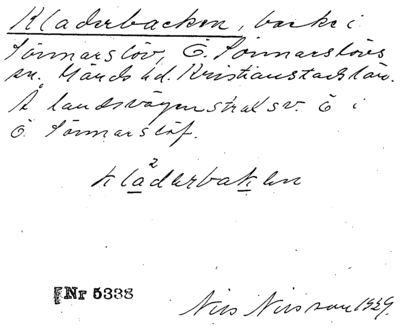 Kladerbacken, backe i
Tönnarslöv, Ö. Tönnarslövs
sn. Hönds hd. Kristianstads län.
Å landsvägen strax v. Ö i
Ö. Tönnarslöf.
2
klad̲erbaken
Nr 5338
Nils Nilsson 1929.